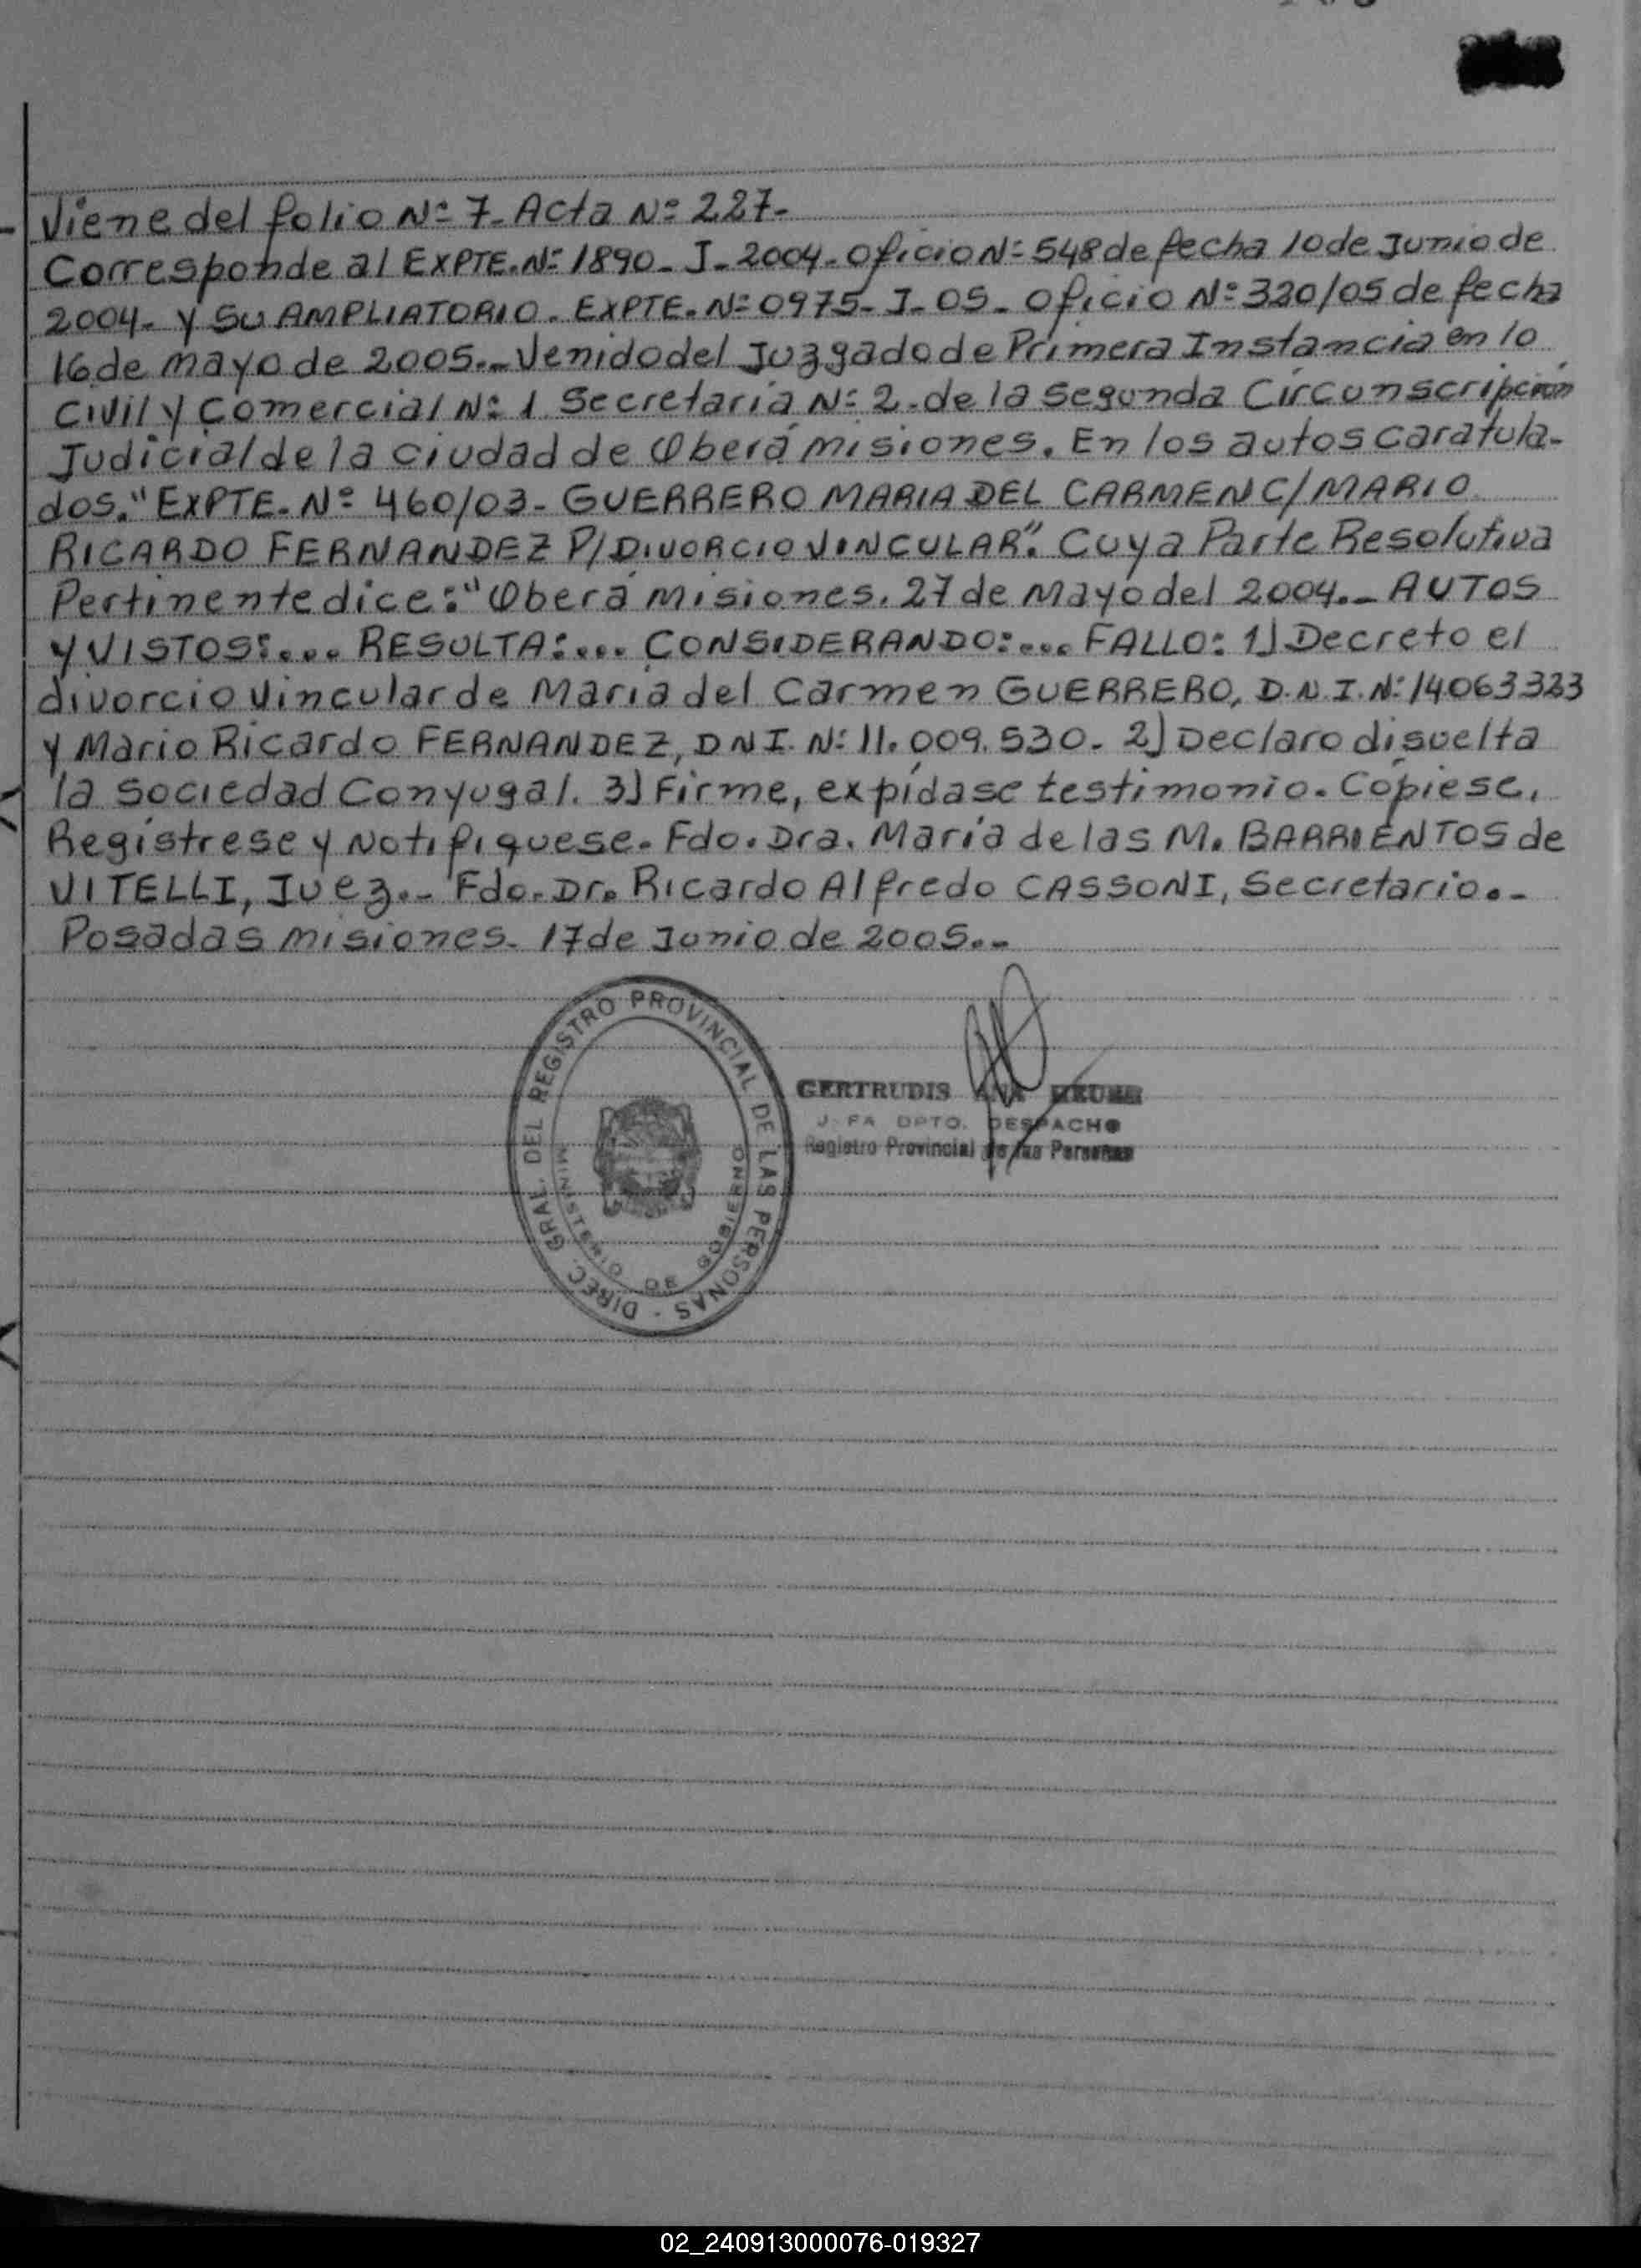 Viene del folio Nº 7- Acta Nº 227-
Corresponde al EXPTE. Nº 1890- J- 2004- Oficio Nº 548 de fecha 10 de Junio de
2004- y SU AMPLIATORIO. EXPTE. Nº 0975- J- 05- Oficio Nº 320/05 de fecha
16 de mayo de 2005.- Venido del Juzgado de Primera Instancia en lo
Civil y Comercial Nº 1 Secretaría Nº 2- de la Segunda Circunscripción
Judicial de la ciudad de Oberá misiones. En los autos caratula-
dos. "EXPTE. Nº 460/03- GUERRERO MARIA DEL CARMEN C/ MARIO
RICARDO FERNANDEZ P/ DIVORCIO VINCULAR". Cuya Parte Resolutiva
Pertinente dice: "Oberá Misiones. 27 de Mayo del 2004.- AUTOS
y VISTOS:... RESULTA:... CONSIDERANDO:... FALLO: 1) Decreto el
divorcio Vincular de María del Carmen GUERRERO, D.N.I. Nº 14063323
y Mario Ricardo FERNANDEZ, DNI. Nº 11.009.530- 2) Declaro disuelta
la Sociedad Conyugal. 3) Firme, expídase testimonio. Cópiese,
Regístrese y Notifíquese. Fdo. Dra. María de las M. BARRIENTOS de
VITELLI, Juez.- Fdo. Dr. Ricardo Alfredo CASSONI, Secretario.-
Posadas misiones- 17 de Junio de 2005.-
DIREC. GRAL. DEL REGISTRO PROVINCIAL DE LAS PERSONAS -
MINISTERIO DE GOBIERNO
GERTRUDIS ANA
J FA DPTO. DESPACHO
Registro Provincial de las Personas
02_240913000076-019327